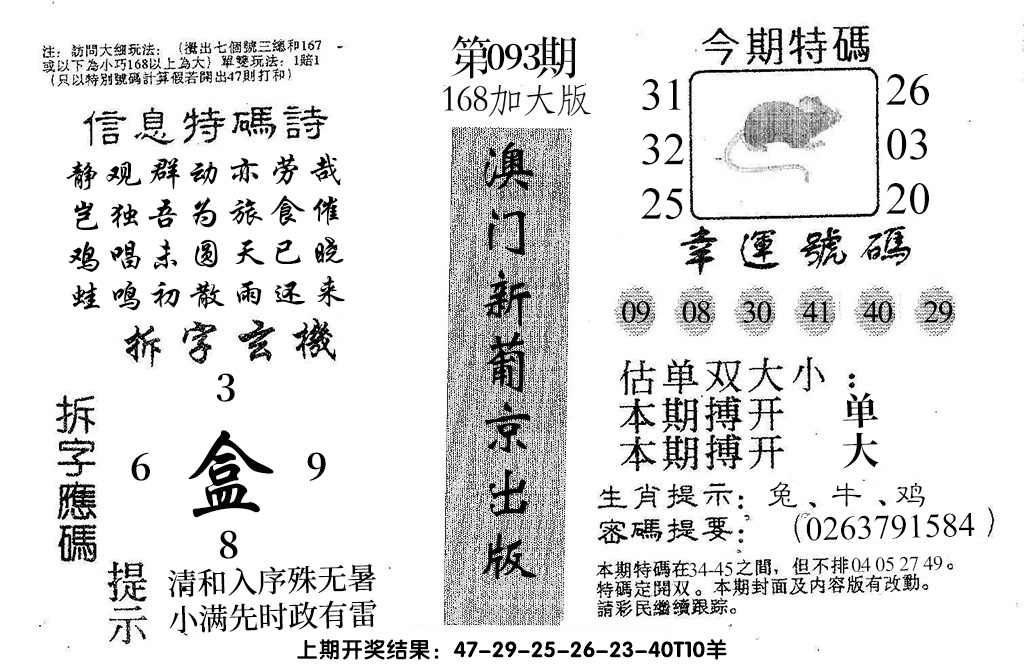 注：訪問大細玩法：（攪出七個號三總和167
或以下為小巧168以上為大）單雙玩法：1賠1
（只以特別號碼計算假若開出47則打和）
信息特碼詩
静观群动亦劳哉
岂独吾为旅食催
鸡唱未圆天已晓
蛙鸣初散雨还来
拆字玄機
拆字應碼
3
6 盒 9
8
提示
清和入序殊无暑
小满先时政有雷
第093期
168加大版
澳门新葡京出版
今期特碼
31 26
32 03
25 20
幸運號碼
09 08 30 41 40 29
估单双大小：
本期搏开 单
本期搏开 大
生肖提示：兔、牛、鸡
密碼提要：（0263791584）
本期特碼在34-45之間，但不排04 05 27 49。
特碼定開双。本期封面及内容版有改動。
請彩民繼續跟踪。
上期开奖结果：47-29-25-26-23-40T10羊